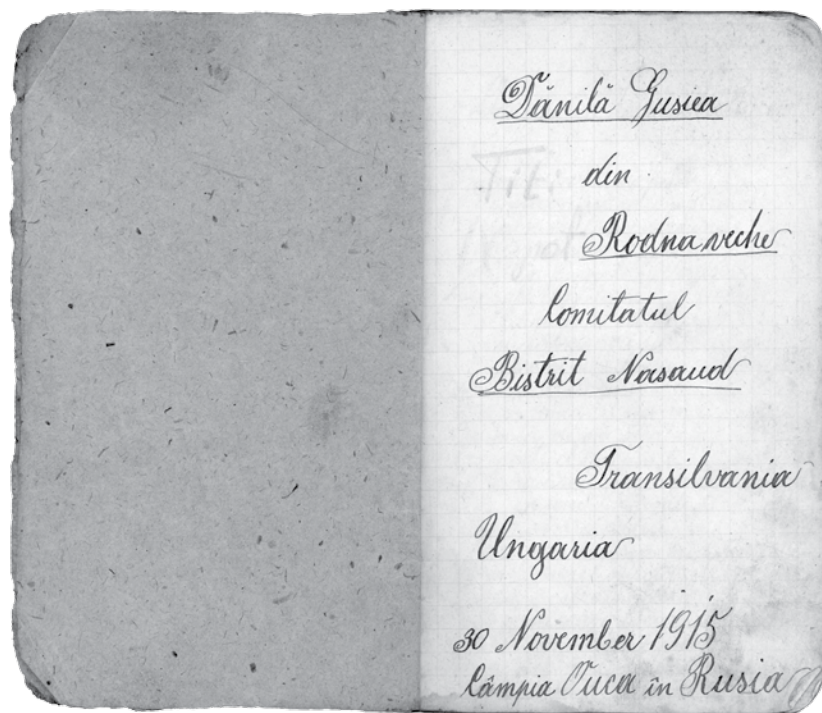 Dănilă Gusiea
din
Rodna veche
Comitatul
Bistrit Nasaud
Transilvania
Ungaria
30 November 1915
Câmpia Ouca în Rusia